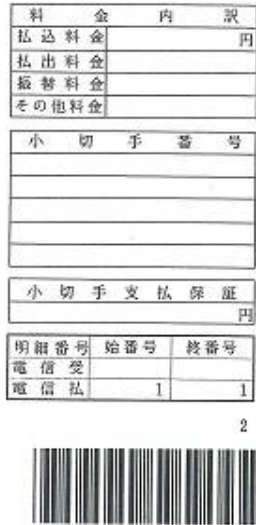 料金内訳
払込料金 円
払出料金
振替料金
その他料金
小切手番号
小切手支払保証
円
明細番号 始番号 終番号
電信受
電信払 1 1
2